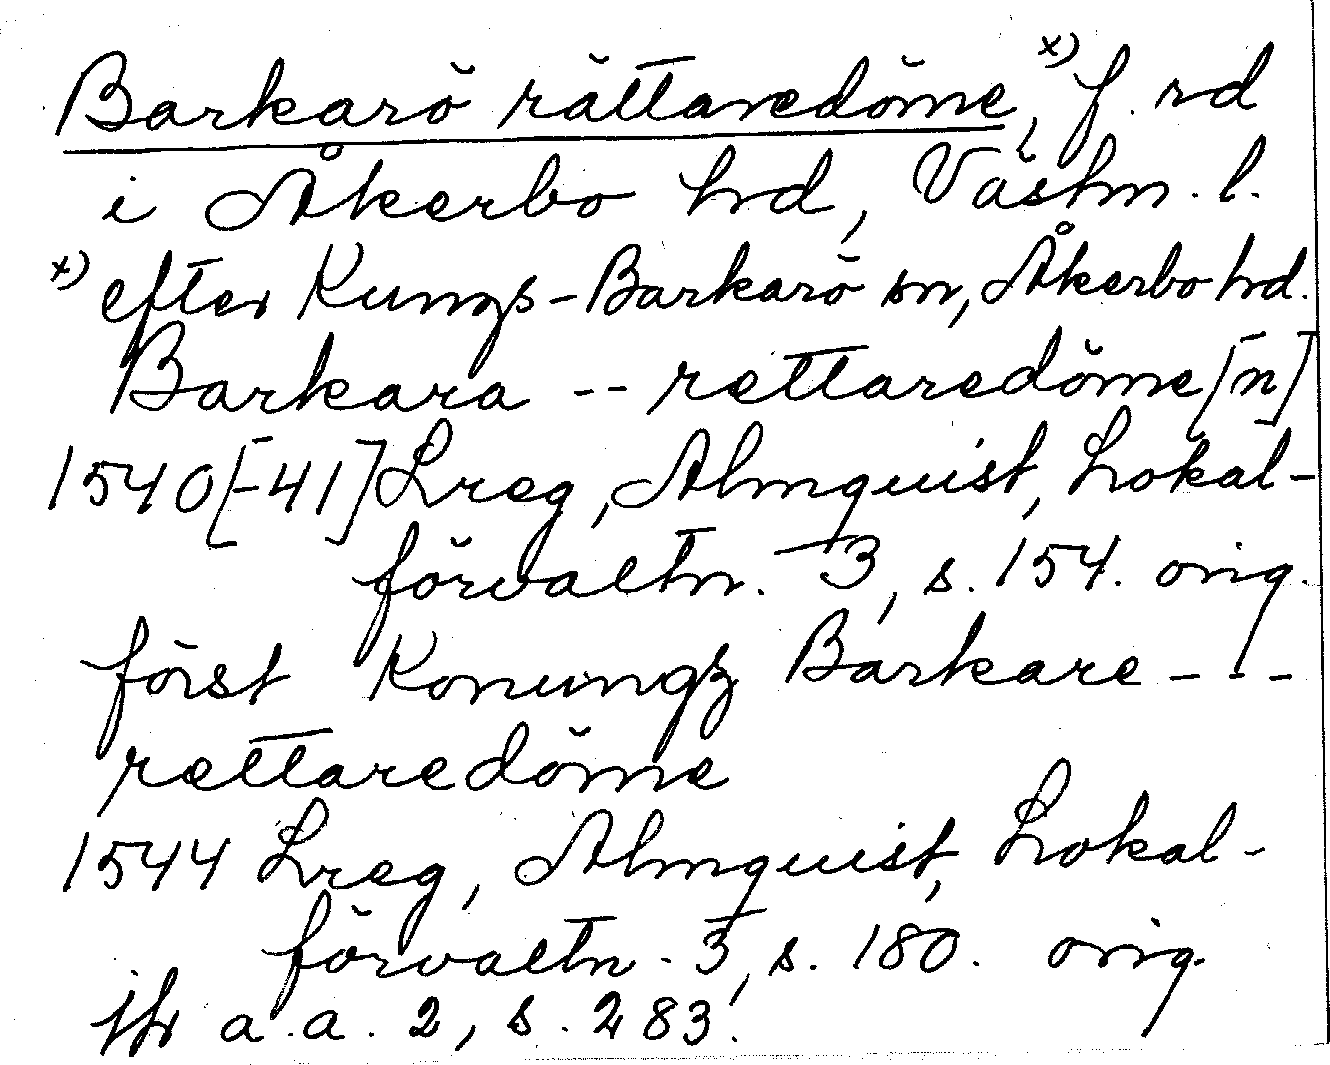 Barkarö rättaredöme, x) f. rd
i Åkerbo hd, Västm. l.
x) efter Kungs-Barkarö sn, Åkerbo hd.
Barkara -- rettaredöme[n]
1540[-41] Lreg, Almquist, Lokal-
förvaltn. 3, s. 154. orig.
först Konungz Barkare ---
rettaredöme
1544 Lreg, Almquist, Lokal-
förvaltn. 3, s. 180. orig.
jfr a.a. 2, s. 283.